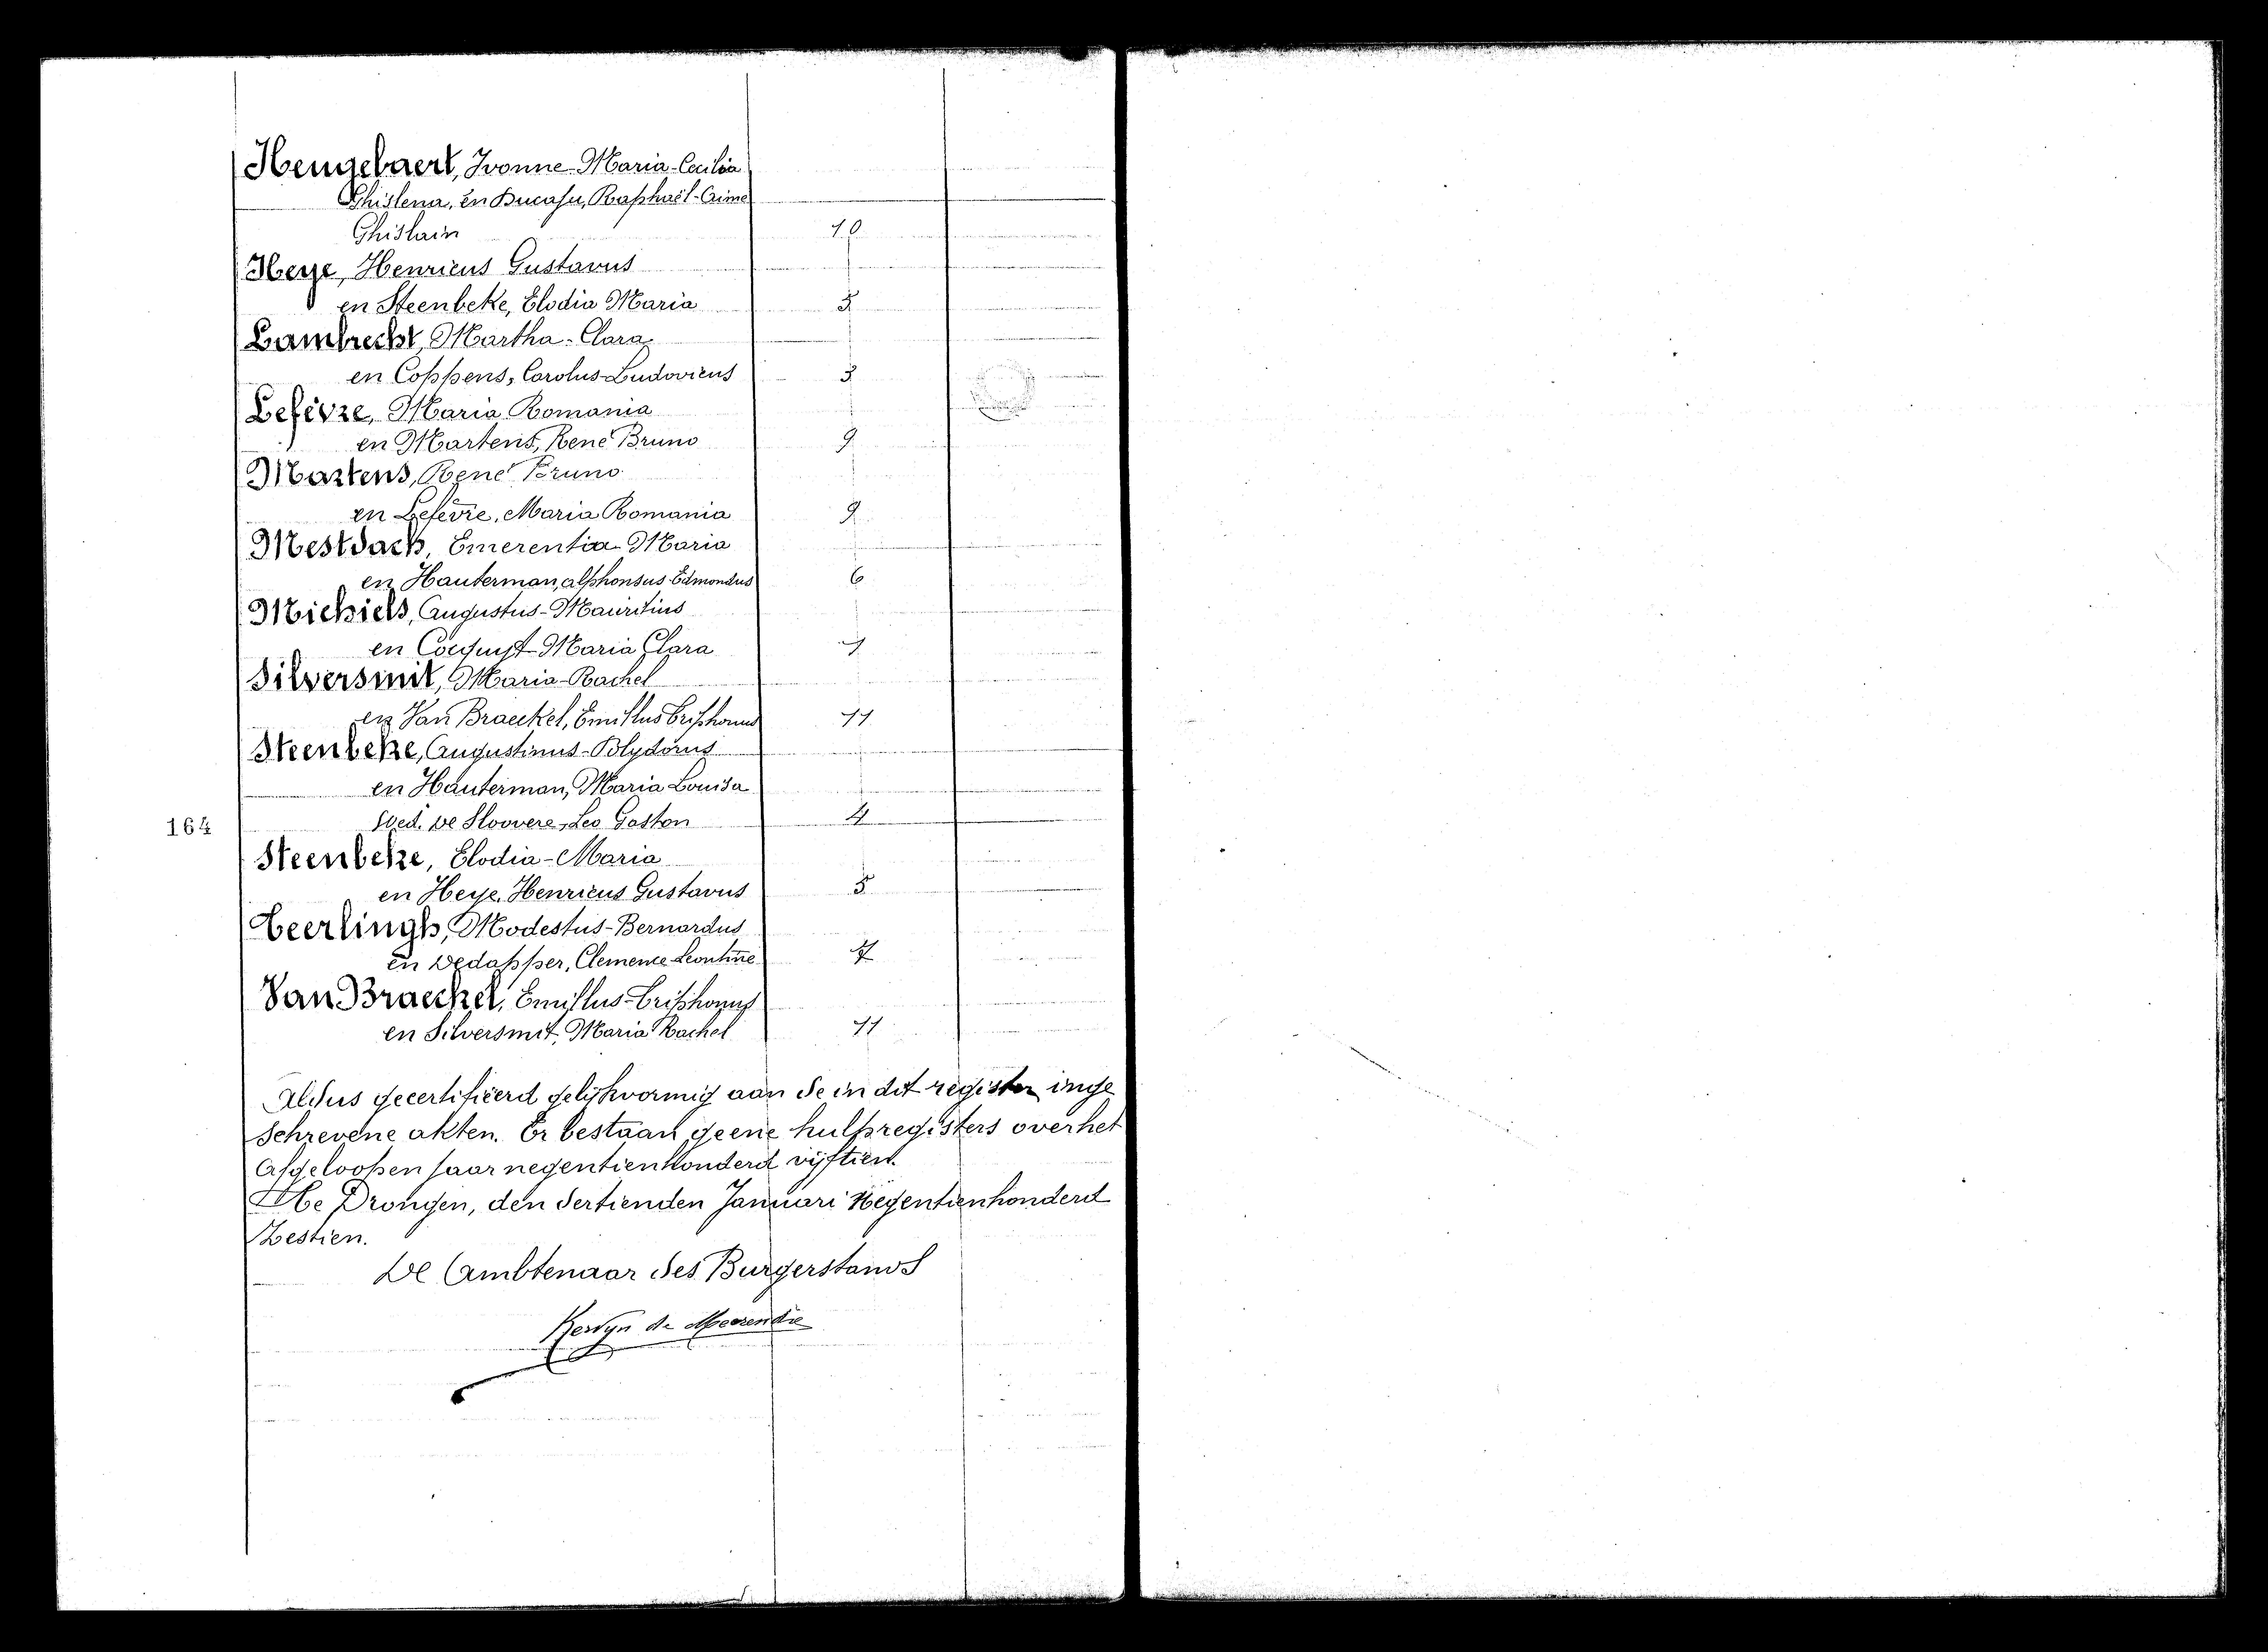 Hengebaert, Ivonne-Maria-Cecilia
Ghislena, en Ducaju, Raphaël-Aimé
Ghislain 10
Heye, Henricus Gustavus
en Steenbeke, Elodia Maria 5
Lambrecht, Martha-Clara
en Coppens, Carolus-Ludovicus 3
Lefèvre, Maria Romania
en Martens, René Bruno 9
Martens, René Bruno
en Lefèvre, Maria Romania 9
Mestdach, Emerentia Maria
en Hauterman, Alphonsus Edmondus 6
Michiels, Augustus-Mauritius
en Maria Clara 1
Silversmit, Maria-Rachel
en Van Braeckel, 11
Steenbeke, Augustinus-Polydorus
en Hauterman, Maria Louisa
Wed. De Sloovere, Leo Gaston 4
164
Steenbeke, Elodia-Maria
en Heye, Henricus Gustavus 5
Teerlingh, Modestus-Bernardus
en Dedapper, Clemence Leontine
Van Braeckel,
en Silversmit, Maria Rachel 11
Aldus gecertificeerd gelijkvormig aan de in dit register inge
schrevene akten. Er bestaan geene hulpregisters over het
afgeloopen jaar negentienhonderd vijftien.
Te Drongen, den dertienden Januari Negentienhonderd
Zestien.
De Ambtenaar des Burgerstands
Kervyn de Meerendré